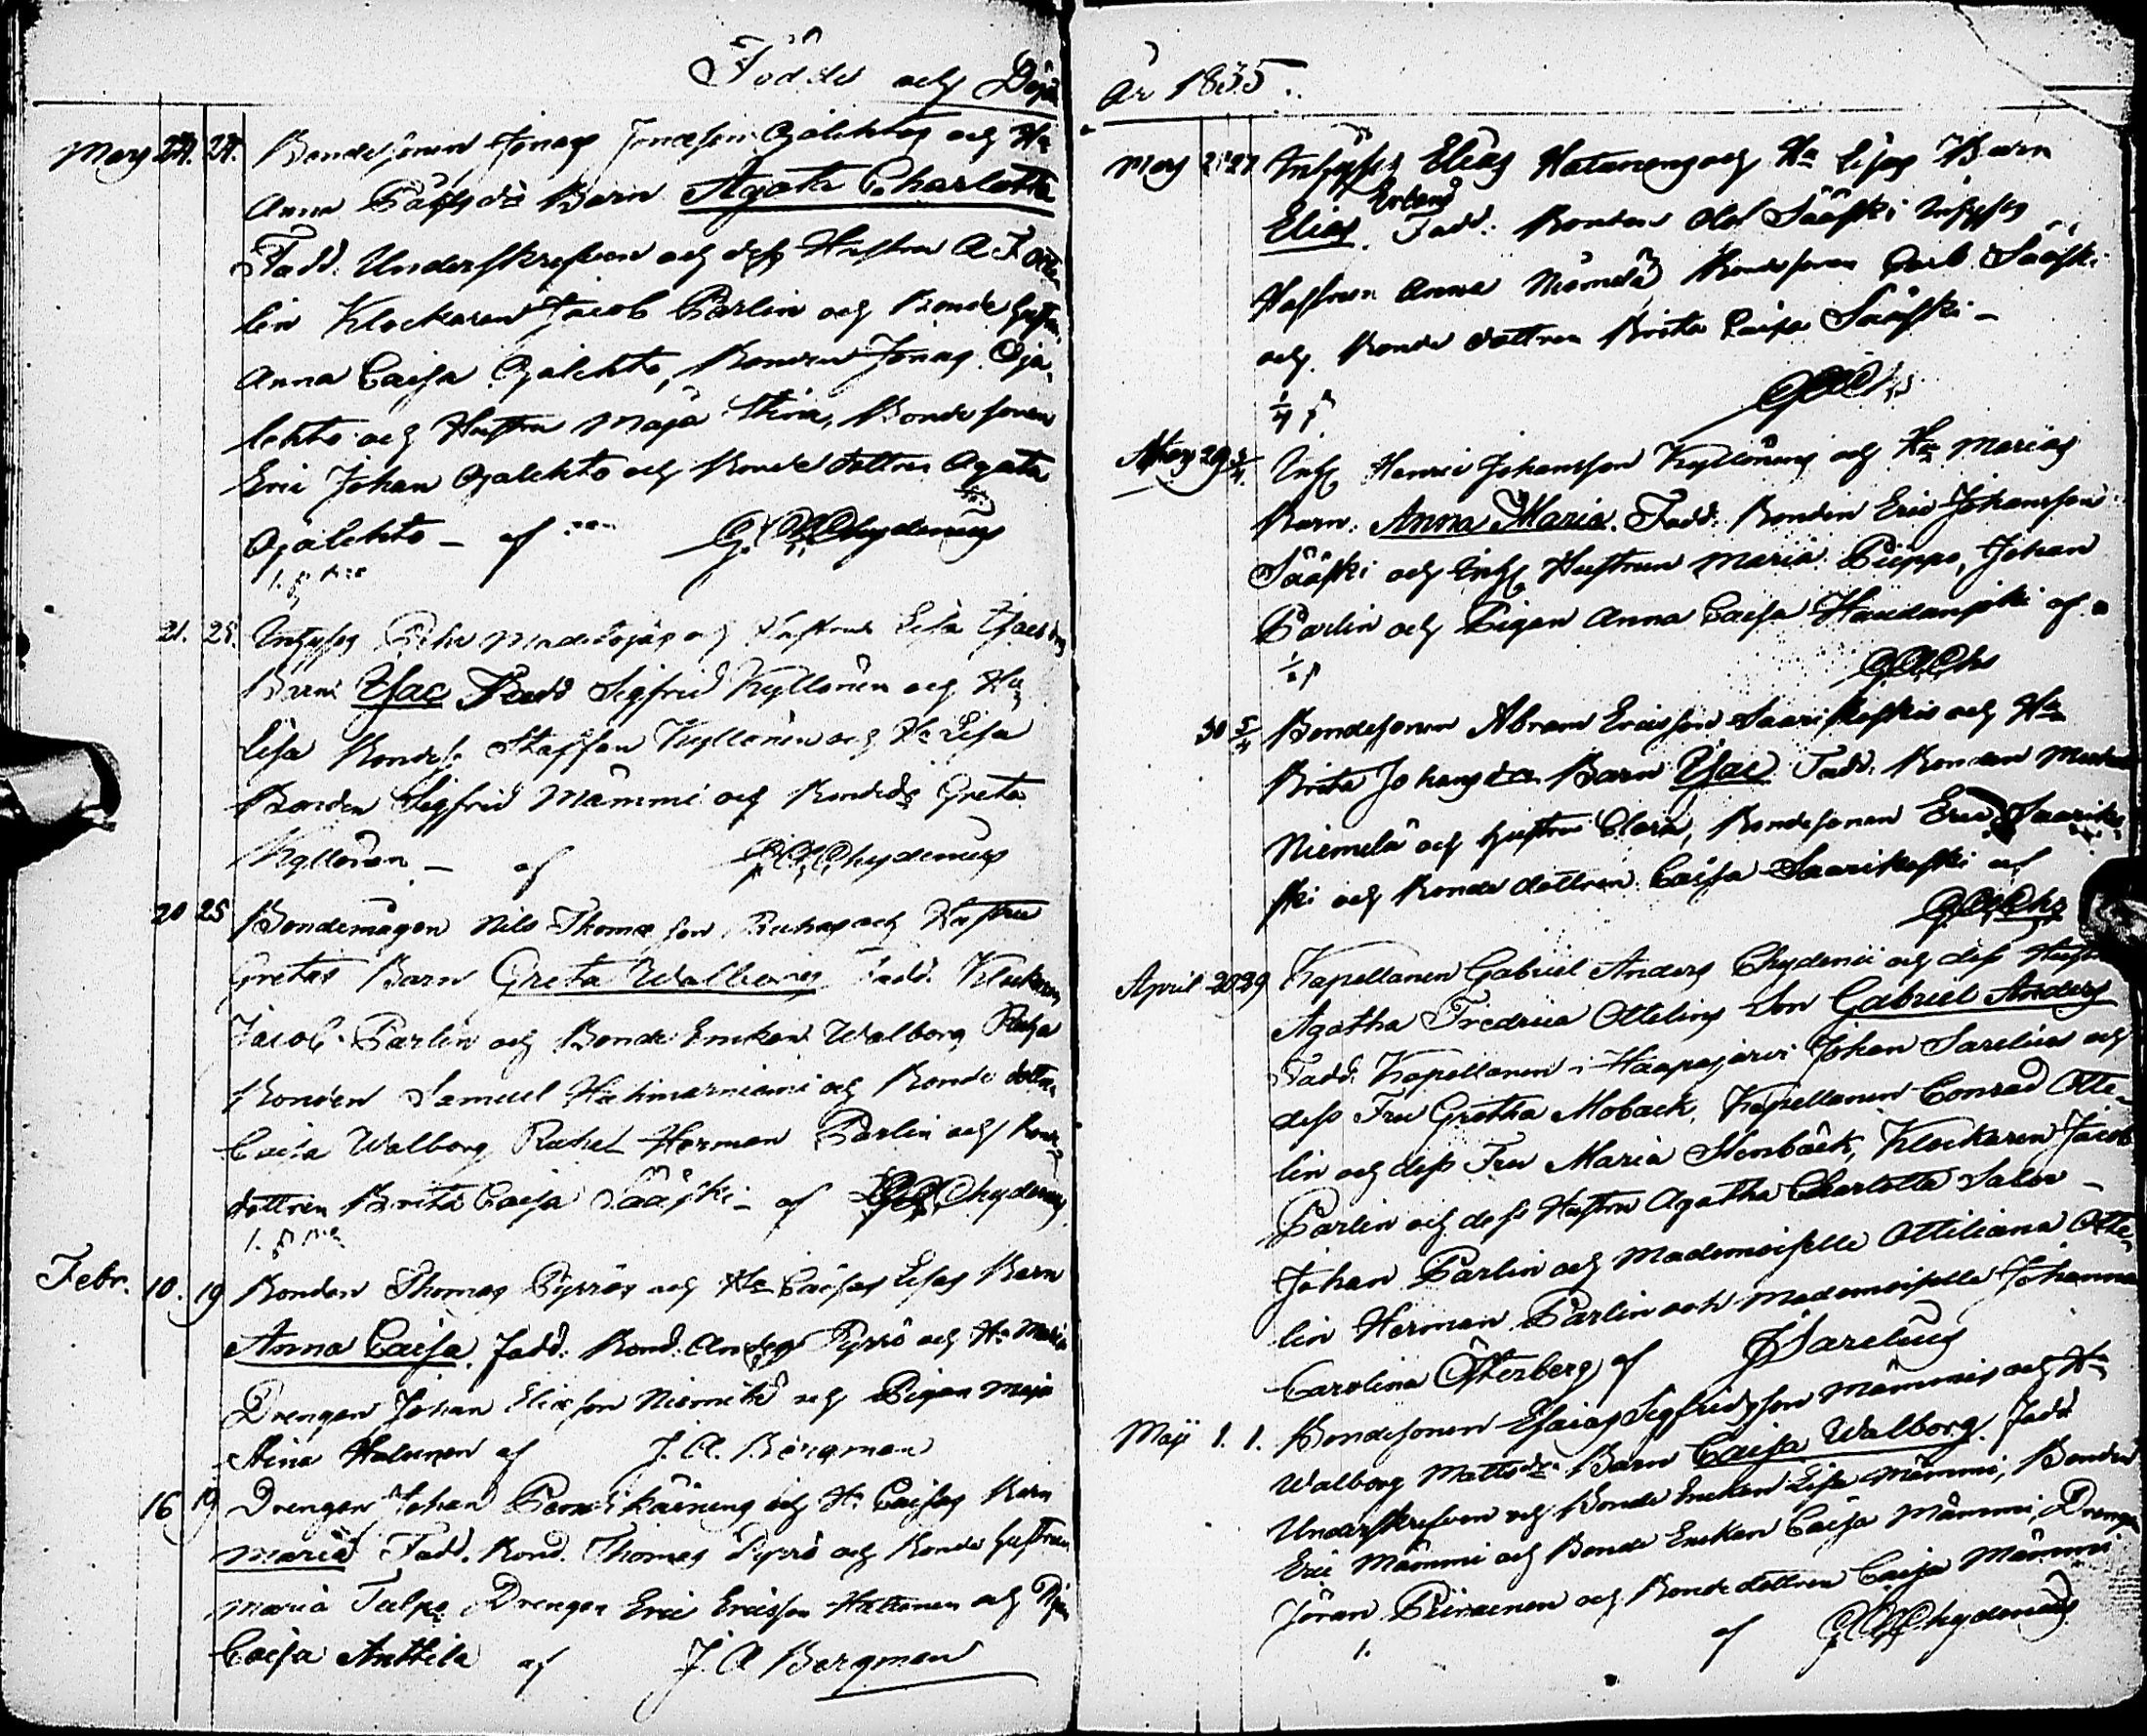 Födde och Döpte
Mars 24. 24. Bondesonen Jonas Jonasson Ojalehtos och Hu
Anna Pålsdr Barn Agata Charlotta
Fadd. Underskrefven och dess Hustru A F Otte
lin Klockaren Jacob Parlin och Bonde hustr.
Anna Caisa Ojalehto, Bonden Jonas Oja
lehto och Hustru Maja Stina, Bondesonen
Eric Johan Ojalehto och Bonde dottren Agata
Ojalehto – af G. A. Chydenius
21. 25. Inhyses Hustrus Lisa
Barn Isac Fadd Sigfrid Kyllönen och Hu
Lisa Bondes. Staffan Kyllönen och Hu Lisa
Bonden Sigfrid Mämmi och Bondedr Greta
Kyllönen – af G. A. Chydenius
20 25 Bondemågen Nils Thomasson och Hustru
Gretas Barn Greta Walborg Fadd. Klockaren
Jacob Parlin och Bonde Enckan Walborg
Bonden Samuel och Bonde dottr.
Caisa Walborg Herman Parlin och Bonde
dottren Brita Caisa Sääski – af G A Chydenius
Febr. 10. 19 Bonden Thomas Pyrrös och Hu Caisas Lisas Barn
Anna Caisa. Fadd. Bond. Anders Pyrrö och Hu Maria
Drengen Johan Eliasson Niemelä och Pigan Maja
Stina af J. A. Bergman
16 19 Drengen Johan och Hu Caisas Barn
Maria Fadd. Bond. Thomas Pyrrö och Bonde hustrun
Maria Tulpo Drengen Eric Ericsson och Pigan
Caisa Anttila af J. A Bergman
År 1835.
Mars 27 Inhyses Elias Hatanens och Hu Lisas Barn
Elias Erland. Fadd: Bonden Olof Sääski Inhyses
Hustrun Anna Niemelä Bondesonen Carl Sääski
och Bonde dottren Brita Caisa Sääski –
G A Chs
Mars 29 Inh. Henric Johansson Kyllönens och Hu Marias
Barn. Anna Maria. Fadd. Bonden Eric Johansson
Sääski och Inh. Hustrun Maria Pieppo, Johan
Parlin och Pigan Anna Caisa af
G. A. Chs
30 5/4 Bondesonen Abram Ericsson Saarikoskis och Hu
Brita Johansdr Barn Isac Fadd. Bonden
Niemelä och hustru Clara, Bondesonen Eric Saariko
ski och Bonde dottren Caisa Saarikoski af
G. A. Chs
April 20 29 Kapellanen Gabriel Anders Chydenii och dess Hustru
Agatha Fredrica Ottelins Son Gabriel Anders
Fadd. Kapellanen i Haapajärvi Johan Sarelius och
dess Fru Gretha Moback, Kapellanen Conrad Otte
lin och dess Fru Maria Stenbäck, Klockaren Jacob
Parlin och dess Hustru Agatha Charlotta Salov –
Johan Parlin och Mademoiselle Ottiliana Otte
lin Herman Parlin och Mademoiselle Johanna
Carolina Österberg af J Sarelius
Maji 1. 1. Bondesonen Esaias Sigfridsson Mämmis och Hu
Walborg Mattsdr Barn Caisa Walborg. Fadd
Underskrefven och Bonde Enckan Lisa Mämmi, Bonden
Eric Mämmi och Bonde Enckan Caisa Mämmi, Drengen
Jöran Piirainen och Bonde dottren Caisa Mämmi
af G A Chydenius